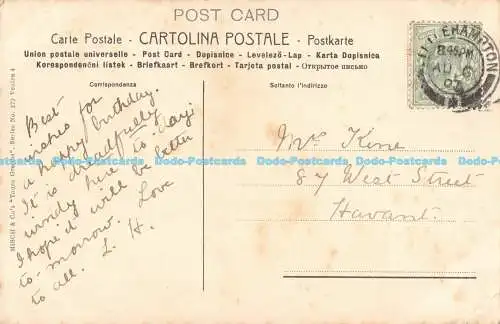 POST CARD
Carte Postale - CARTOLINA POSTALE - Postkarte
Union postale universelle - Post Card - Dopisnice - Levelező-Lap - Karta Dopisnica
Korespondenční lístek - Briefkaart - Brefkort - Tarjeta postal - Открытое письмо
Corrispondenza
Soltanto l'indirizzo
Best
wishes for
a happy birthday.
It is dreadfully
windy here to-day
I hope it will be better
to-morrow. Love
to all. L. H.
Mrs Kine
87 West Street
Havant.
LITTLEHAMPTON
8.45PM
AU 6
Dodo-Postcards Dodo-Postcards Dodo-Postcards Dodo-Postcards Dodo-Postcards